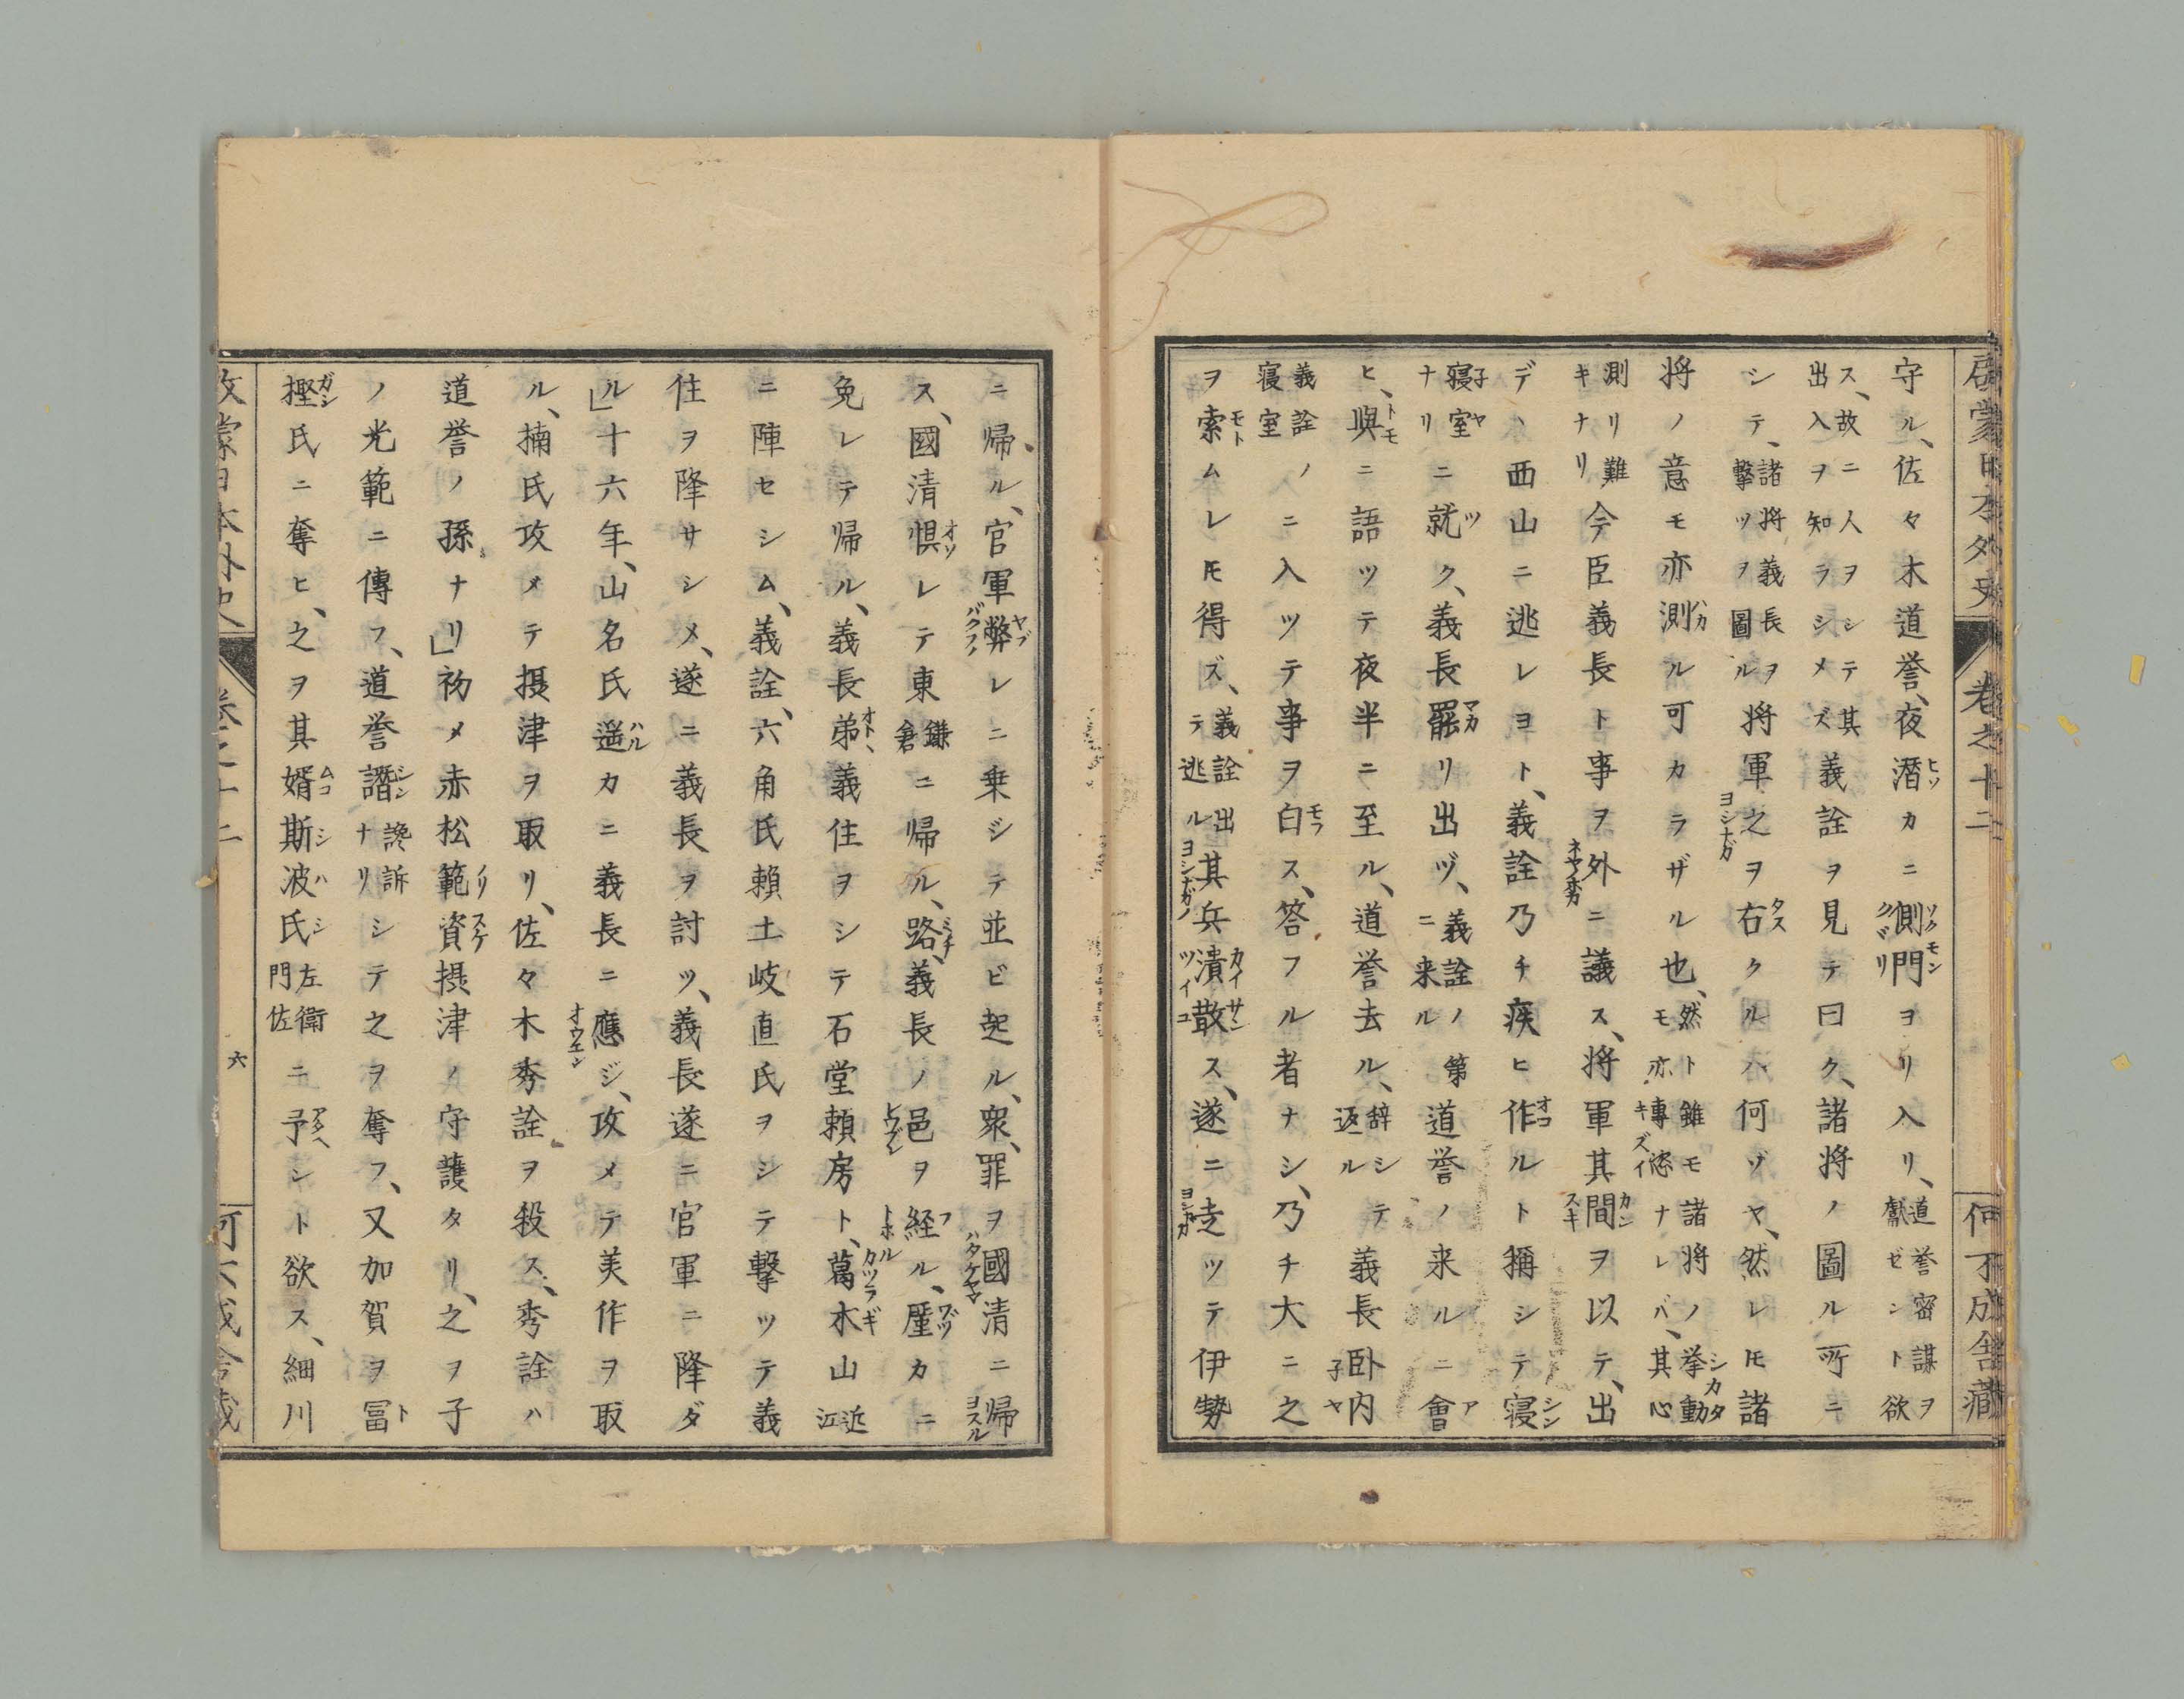 啓蒙日本外史 巻之十二 何不成舎蔵
守ル、佐々木道誉、夜潜カニ側門ヨリ入リ、道誉密謀ヲ獻ゼント欲
ス、故ニ人ヲシテ其出入ヲ知ラシメズ義詮ヲ見テ曰ク、諸将ノ圖ル所ニ
シテ、諸将義長ヲ撃ツヲ圖ル将軍之ヲ右クルハ何ゾヤ、然レ𪜈諸
将ノ意モ亦測ル可カラザル也、然ト雖モ諸将ノ挙動モ亦專恣ナレバ、其心
測リ難キナリ今臣義長ト事ヲ外ニ議ス、将軍其間ヲ以テ、出
デヽ西山ニ逃レヨト、義詮乃チ疾ヒ作ルト稱シテ寝
室ニ就ク、義長罷リ出ヅ、義詮ノ第ニ来ル道誉ノ来ルニ會
ヒ、與ニ語ツテ夜半ニ至ル、道誉去ル、辞シテ返ル義長卧内
義詮ノ寝室ニ入ツテ事ヲ白ス、答フル者ナシ、乃チ大ニ之
ヲ索ムレ𪜈得ズ、義詮出テ逃ル其兵潰散ス、遂ニ走ツテ伊勢
ニ帰ル、官軍弊レニ乗ジテ並ビ起ル、衆、罪ヲ國清ニ帰
ス、國清惧レテ東鎌倉ニ帰ル、路、義長ノ邑ヲ経ル、厪カニ
免レテ帰ル、義長弟義住ヲシテ石堂頼房ト、葛木山近江
ニ陣セシム、義詮、六角氏頼土岐直氏ヲシテ撃ツテ義
住ヲ降サシメ、遂ニ義長ヲ討ツ、義長遂ニ官軍ニ降ダ
ル」十六年、山名氏遥カニ義長ニ應ジ、攻メテ美作ヲ取
ル、楠氏攻メテ摂津ヲ取リ、佐々木秀詮ヲ殺ス、秀詮ハ
道誉ノ孫ナリ」初メ赤松範資摂津ノ守護タリ、之ヲ子
ノ光範ニ傳フ、道誉譖讒訴ナリシテ之ヲ奪フ、又加賀ヲ冨
樫氏ニ奪ヒ、之ヲ其婿斯波氏左衛門佐ニ予シント欲ス、細川
六